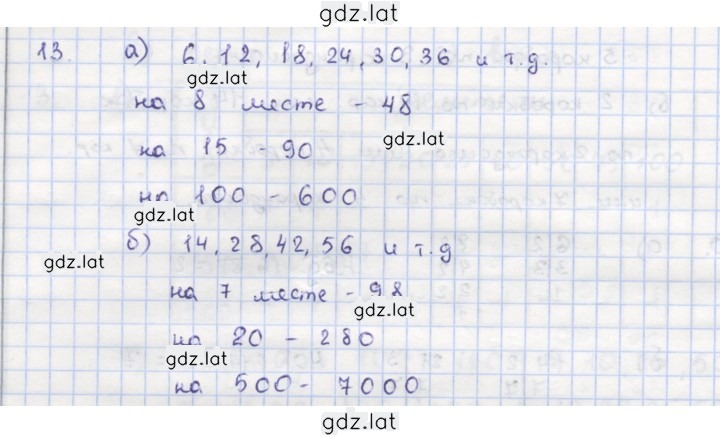 gdz.lat
13. а) 6. 12, 18, 24, 30, 36 и т.д.
gdz.lat
на 8 месте - 48
gdz.lat
на 15 - 90
на 100 - 600
gdz.lat
б) 14, 28, 42, 56 и т.д
gdz.lat
на 7 месте - 98
gdz.lat
на 20 - 280
gdz.lat
на 500 - 7000
gdz.lat